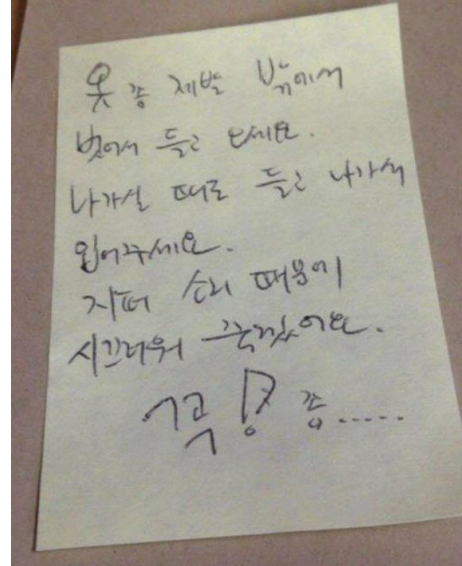 옷 좀 제발 밖에서
벗어서 들고 오세요.
나가실 때도 들고 나가서
입어주세요.
지퍼 소리 때문에
시끄러워 죽겠어요.
꼭 좀.....